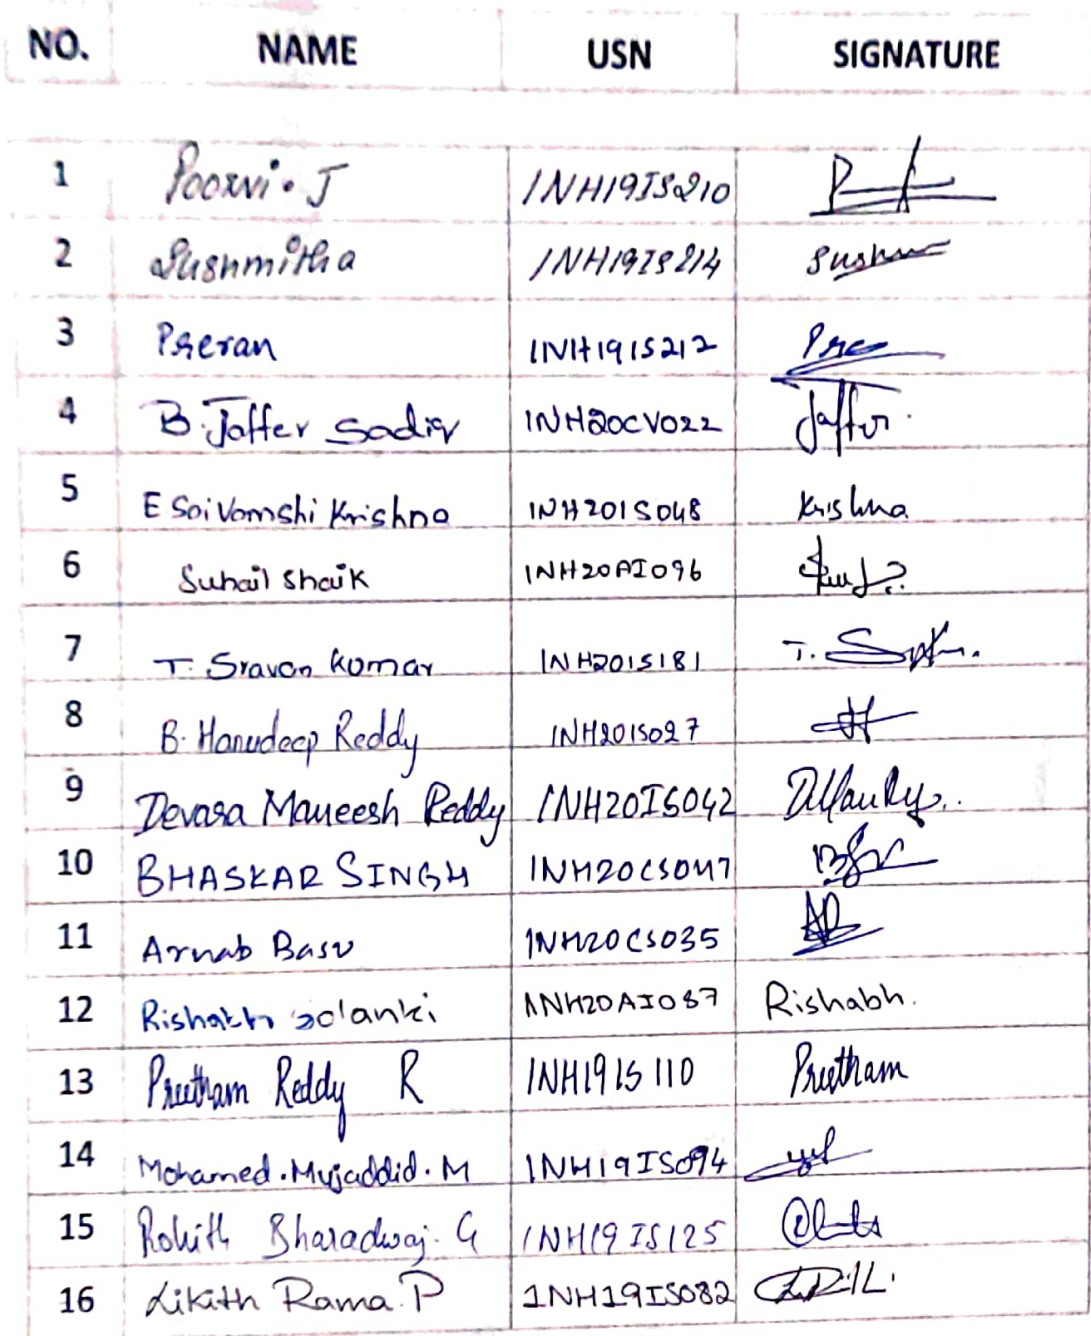 NO. NAME USN SIGNATURE
1 Poorvi. J 1NH19IS210
2 Sushmitha 1NH19IS214 Sushm
3 Preran 1NH19IS212 Pre
4 B. Jaffer Sadiq 1NH20CV022 Jaffer.
5 E Sai Vamshi Krishna 1NH20IS048 Krishna
6 Suhail Shaik 1NH20AI096
7 T. Sravan Kumar 1NH20IS181 T.
8 B. Hanudeep Reddy 1NH20IS027
9 Devara Maneesh Reddy 1NH20IS042
10 BHASKAR SINGH 1NH20CS047
11 Arnab Basu 1NH20CS035
12 Rishabh Solanki 1NH20AI087 Rishabh.
13 Preetham Reddy R 1NH19IS110 Preetham
14 Mohamed.Mujaddid.M 1NH19IS094
15 Rohith Bharadwaj. G 1NH19IS125
16 Likith Rama.P 1NH19IS082